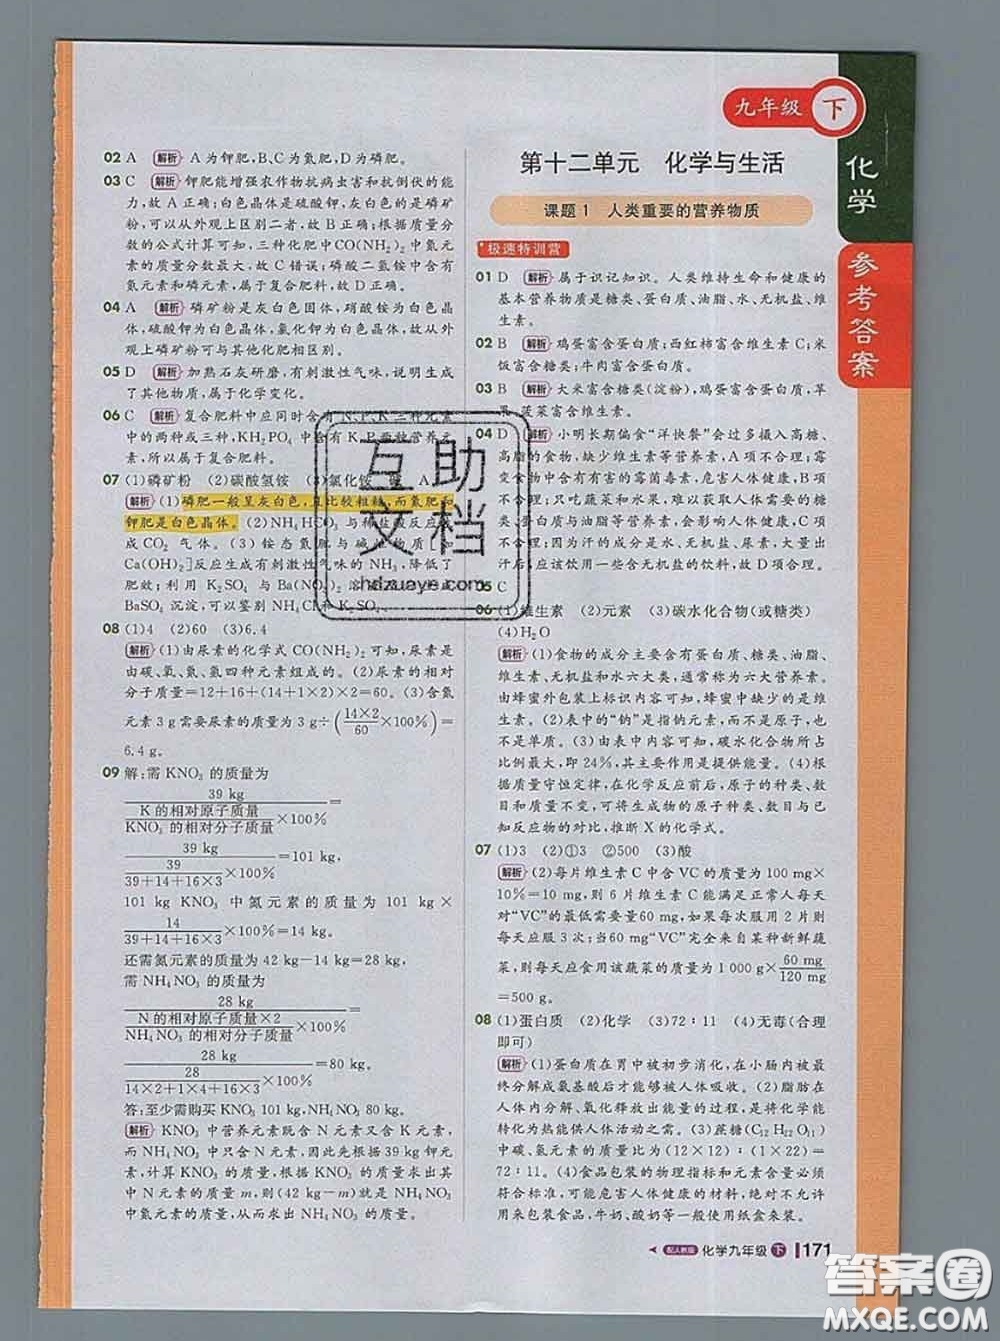 九年级 下
化学
参考答案
02 A 解析 A为钾肥,B、C为氮肥,D为磷肥。
03 C 解析 钾肥能增强农作物抗病虫害和抗倒伏的能
力,故A正确;白色晶体是硫酸钾,灰色的是磷矿
粉,可以从外观上区别二者,故B正确;根据质量分
数的公式计算可知,三种化肥中CO(NH₂)₂中氮元
素的质量分数最大,故C错误;磷酸二氢铵中含有
氮元素和磷元素,属于复合肥料,故D正确。
04 A 解析 磷矿粉是灰白色固体,硝酸铵为白色晶
体,硫酸钾为白色晶体,氯化钾为白色晶体,故从外
观上磷矿粉可与其他化肥相区别。
05 D 解析 加熟石灰研磨,有刺激性气味,说明生成
了其他物质,属于化学变化。
06 C 解析 复合肥料中应同时含有N、P、K三种元素
中的两种或三种,KH₂PO₄中含有K、P两种营养元
素,所以属于复合肥料。
07 (1)磷矿粉 (2)碳酸氢铵 (3)氯化铵 A
解析 (1)磷肥一般呈灰白色,且比较粗糙,而氮肥和
钾肥是白色晶体。(2)NH₄HCO₃与稀盐酸反应
成CO₂气体。(3)铵态氮肥与碱 物质[如
Ca(OH)₂]反应生成有刺激性气味的NH₃,降低了
肥效;利用K₂SO₄与Ba(NO₃)₂ 成
BaSO₄沉淀,可以鉴别NH₄Cl和K₂SO₄。
08 (1)4 (2)60 (3)6.4
解析 (1)由尿素的化学式CO(NH₂)₂可知,尿素是
由碳、氧、氮、氢四种元素组成的。(2)尿素的相对
分子质量=12+16+(14+1×2)×2=60。(3)含氮
元素3 g需要尿素的质量为3 g÷(14×2/60×100%)=
6.4 g。
09 解:需KNO₃的质量为
39 kg
K的相对原子质量/KNO₃的相对分子质量×100% =
39/(39/(39+14+16×3)×100%)=101 kg,
101 kg KNO₃中氮元素的质量为101 kg×
14/(39+14+16×3)×100%=14 kg。
还需氮元素的质量为42 kg−14 kg=28 kg,
需NH₄NO₃的质量为
28 kg
N的相对原子质量×2/NH₄NO₃的相对分子质量×100% =
28 kg/(28/(14×2+1×4+16×3)×100%)=80 kg。
答:至少需购买KNO₃ 101 kg,NH₄NO₃ 80 kg。
解析 KNO₃中营养元素既含N元素又含K元素,
而NH₄NO₃中只含N元素,因此先根据39 kg K元
素,计算KNO₃的质量,根据KNO₃的质量求出其
中N元素的质量m,则(42 kg−m)就是NH₄NO₃
中氮元素的质量,从而求出NH₄NO₃的质量。
第十二单元 化学与生活
课题1 人类重要的营养物质
极速特训营
01 D 解析 属于识记知识。人类维持生命和健康的
基本营养物质是糖类、蛋白质、油脂、水、无机盐、维
生素。
02 B 解析 鸡蛋富含蛋白质;西红柿富含维生素C;米
饭富含糖类;牛肉富含蛋白质。
03 B 解析 大米富含糖类(淀粉),鸡蛋富含蛋白质,草
菠菜富含维生素。
04 D 解析 小明长期偏食“洋快餐”会过多摄入高糖、
高脂的食品,不能使营养全面均衡,A项不合理;霉
变食物中含有有害的霉菌毒素,B项不合理;人体
,只吃蔬菜和水果,不能满足健康的需要,C项
质与油脂是维持生命的重要营养物质,
出汗中含水、无机盐、尿素,大量出
汗后,应该饮用一些含有无机盐的饮料,故D项合理。
05 C
06 (1)维生素 (2)元素 (3)碳水化合物(或糖类)
(4)H₂O
解析 (1)食物的成分主要含有蛋白质、糖类、油脂、
维生素、无机盐和水六大类,通常称为六大营养素。
由蜂蜜外包装上标识内容可知,蜂蜜中缺少的是维
生素。(2)表中的“钠”是指钠元素,而不是原子,也
不是单质。(3)由表中内容可知,碳水化合物所占
比最高,即24%,其中富含的是碳水化合物。(4)根
据质量守恒定律,在化学反应前后,原子的种类、数目和
质量不变,可将生成物的原子种类、数目与已
知反应物的对比,推断X的化学式。
07 (1)3 (2)①3 ②500 (3)酸
解析 (2)每片维生素C中含VC的质量为100 mg×
10%=10 mg,则6片维生素C能满足正常人每天
对“VC”的最低需要量60 mg,如果每次服用2片,则
每天应服用3次;当60 mg“VC”完全来自某种新鲜蔬
菜,则每天应食用该蔬菜的质量为1 000 g×60 mg/120 mg
=500 g。
08 (1)蛋白质 (2)化学 (3)72∶11 (4)无毒(合理
即可)
解析 (1)蛋白质在胃中被初步消化,在小肠内被最
终分解成氨基酸后才能够被人体吸收。(2)脂肪在
人体内分解、氧化释放出能量的过程,是将化学能
转化为热能供人体活动之需。(3)蔗糖(C₁₂H₂₂O₁₁)
中碳、氢元素的质量比为(12×12)∶(1×22)=
72∶11。(4)食品包装的物理指标和元素含量必须
符合规定,可能危害人体健康的材料,绝对不允许
用来包装食品,牛奶、酸奶等一般用纸盒或塑料盒。
配人教版 化学九年级 下 171
互助文档
hdzuaye.com
答案圈
MXQE.COM